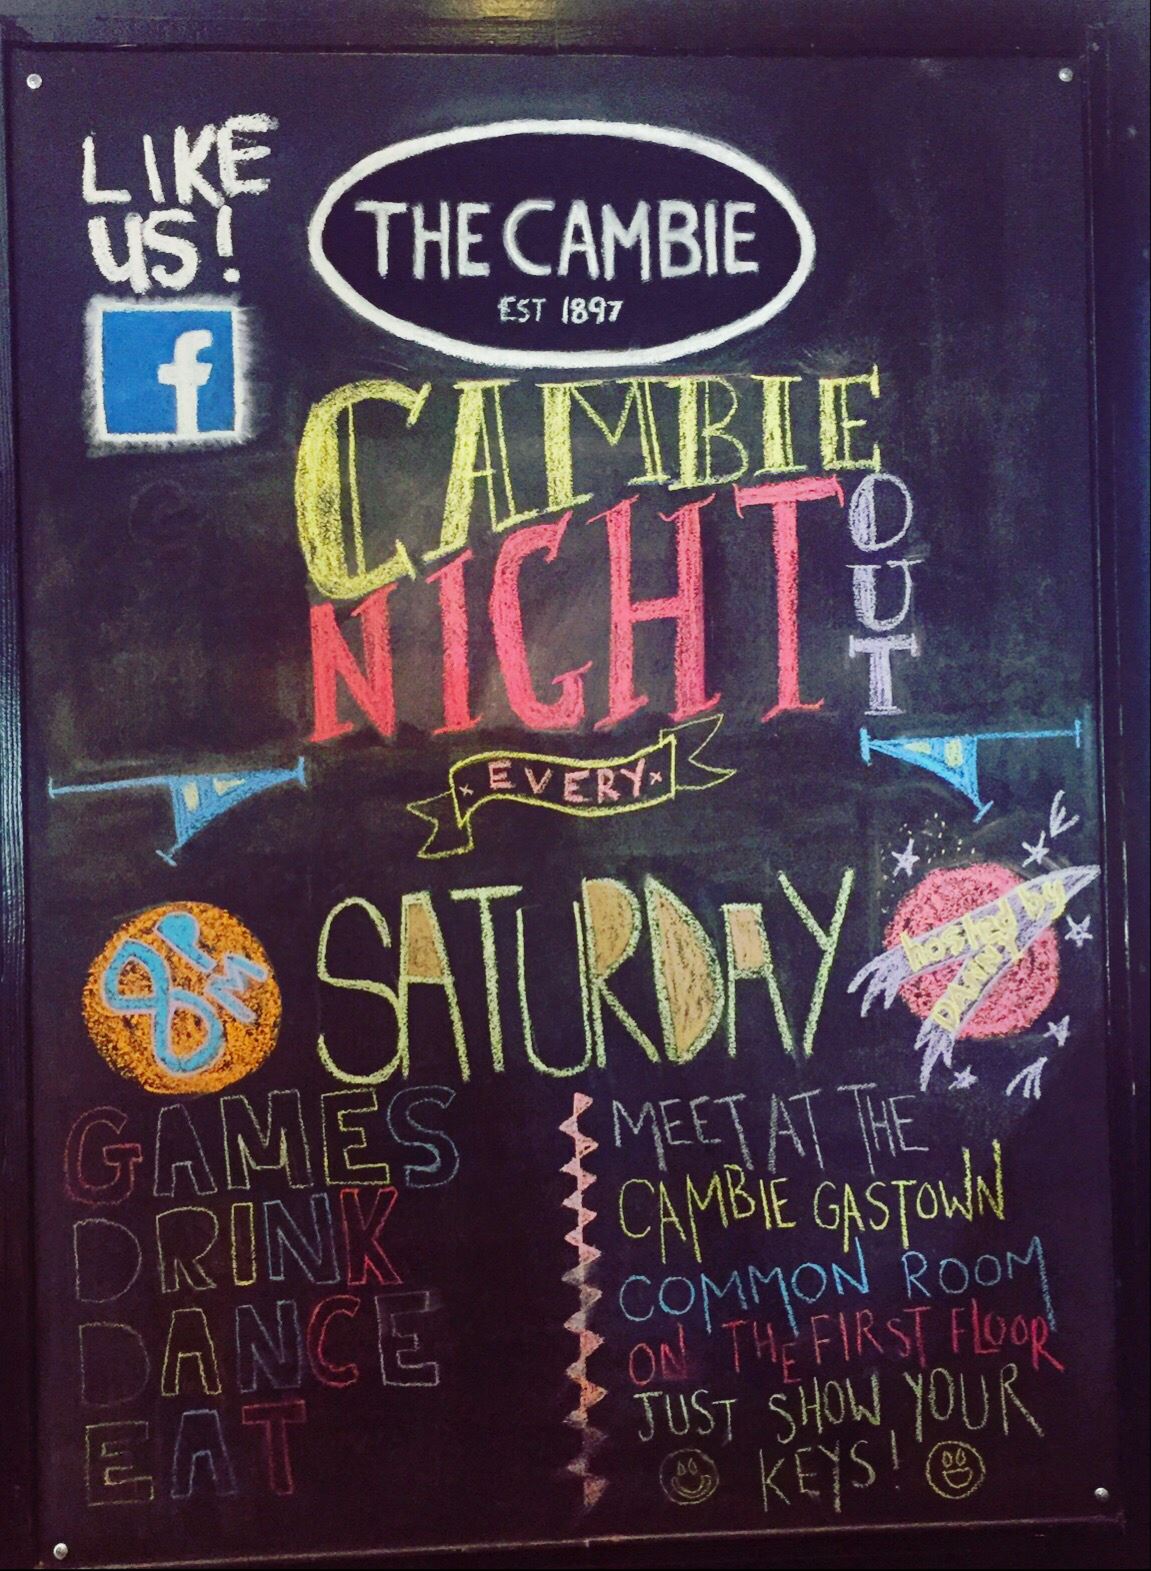 LIKE
US!
f
THE CAMBIE
EST 1897
CAMBIE
NIGHT
OUT
EVERY
SATURDAY
8PM
hosted by
DANNY
GAMES
DRINK
DANCE
EAT
MEET AT THE
CAMBIE GASTOWN
COMMON ROOM
ON THE FIRST FLOOR
JUST SHOW YOUR
KEYS!